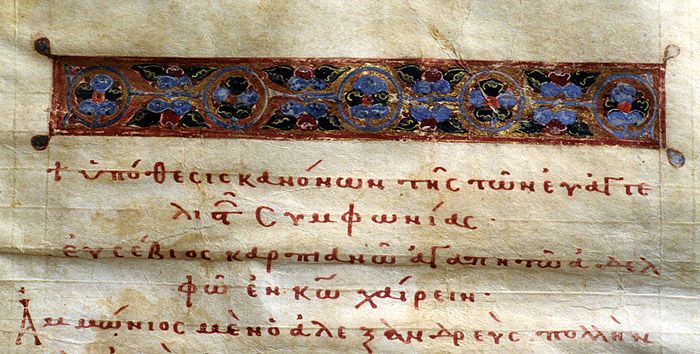 + ὑπόθεσις κανόνων τῆς τῶν εὐαγγε
λιστ͂ συμφωνίας·
εὐσέβιος καρπιανῶ ἀγαπητῶ ἀδελ
φῶ ἐν κ͞ω χαίρειν·
Ἀμμώνιος μὲν ὁ ἀλεξανδρεὺς πολλὴν